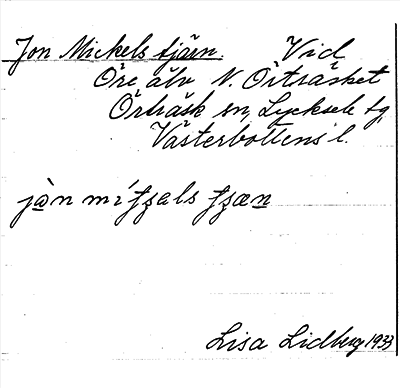 Jon Mickels tjärn. Vid
Öre älv N. Örträsket
Örträsk sn, Lycksele tg
Västerbottens l.
jὰn míʄʒals ʄʒæn
Lisa Lidberg 1933